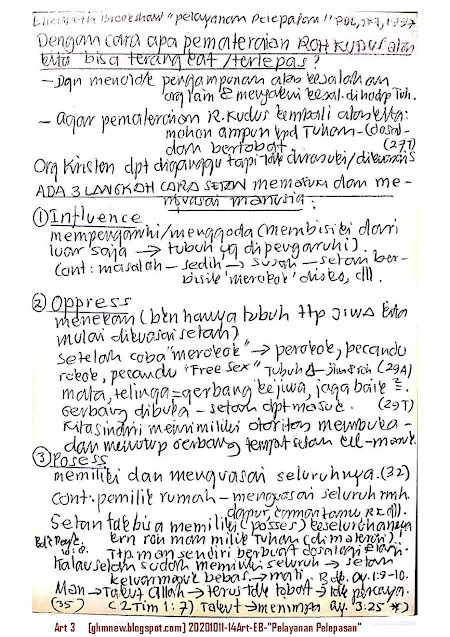 Elizabeth Brookshaw "Pelayanan Pelepasan" PDL, 1997
Dengan cara apa pemateraian ROH KUDUS atas
kita bisa terangkat/terlepas?
- Dgn menolak pengampunan atas kesalahan
org lain & menyakini kesal. dihadp Tuh.
- Agar pemateraian R. Kudus kembali atas kita:
mohon ampun kpd Tuhan - (dosa) -
dan bertobat. (27T)
Org Kristen dpt diganggu tapi tdk dirasuki/dikuasai
ADA 3 LANGKAH CARA SETAN memasuki dan me-
nguasai manusia:
① Influence
mempengaruhi/menggoda (membisiki dari
luar saja → tubuh yg dipengaruhi).
Cont: masalah - sedih → susah - setan ber-
bisik 'merokok' disko, dll.
② Oppress
menekan (bkn hanya tubuh ttp JIWA kita
mulai dikuasai setan)
setelah coba "merokok" → perokok, pecandu
rokok, pecandu "Free Sex" Tubuh (29A)
mata, telinga = gerbang ke jiwa, jaga baik².
Gerbang dibuka - setan dpt masuk. (29T)
Kita sindiri memimiliki otoritas membuka -
dan menutup gerbang tempat setan kel-masuk.
③ Posess
memiliki dan menguasai seluruhnya. (32)
Cont: pemilik rumah - menguasai seluruh rmh
dapur, kamar tamu, RK dll).
Setan tak bisa memiliki (posses) keseluruhannya
krn roh man milik Tuhan (dimaterai)
Ttp. man sendiri berbuat dosa lagi
Kalau setan sudah memiliki seluruh → setan
keluar masuk bebas → mati, Ay. 1:9-10.
Man → Takut Allah → terus tdk tobat → tdk percaya.
(35) (2 Tim 1:7) Takut → menimpa Ay. 3:25 *)
Art 3 [ghmnew.blogspot.com] 20201011-14Art-EB-"Pelayanan Pelepasan"